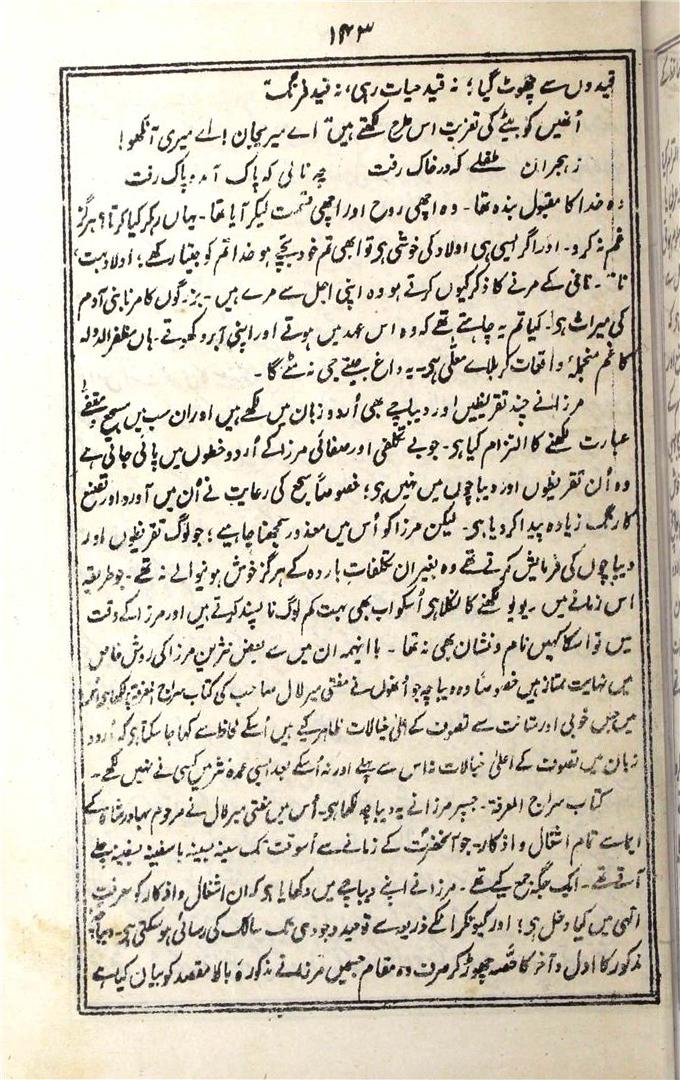 ۱۴۳
قیدوں سے چھوٹ گیا؛ نہ قید حیات رہی، نہ قید فرنگ"
اُنھیں کو بیٹے کی تعزیت اس طرح لکھتے ہیں" اے میری جان! اے میری آنکھو!
ز ہجران طفلے کہ در خاک رفت چہ نالی کہ پاک آمد و پاک رفت
وہ خدا کا مقبول بندہ تھا۔ وہ اچھی روح اور اچھی قسمت لیکر آیا تھا۔ یہاں رہکر کیا کرتا؟ ہرگز
غم نہ کرو۔ اور اگر ایسی ہی اولاد کی خوشی ہی تو ابھی تم خود بچے ہو خدا تم کو جیتا رکھے؛ اولاد بہت،
نانا نانی کے مرنے کا ذکر کیوں کرتے ہو وہ اپنی اجل سے مرے ہیں۔ بزرگوں کا مرنا بنی آدم
کی میراث ہی۔ کیا تم یہ چاہتے تھے کہ وہ اس عہد میں ہوتے اور اپنی آبرو کھوتے۔ ہاں مظفر الدولہ
کا غم منجملۂ واقعات کربلاے معلّٰی ہی۔ یہ داغ جیتے جی نہ مٹے گا۔
مرزا نے چند تقریظیں اور دیباچے بھی اُردو زبان میں لکھے ہیں اور ان سب میں مسجع و مقفّٰی
عبارت لکھنے کا التزام کیا ہی۔ جو بے تکلفی اور صفائی مرزا کے اُردو خطوں میں پائی جاتی ہے
وہ اُن تقریظوں اور دیباچوں میں نہیں ہی؛ خصوصاً سجع کی رعایت نے اُن میں آورد اور تصنع
کا رنگ زیادہ پیدا کر دیا ہی۔ لیکن مرزا کو اُس میں معذور سمجھنا چاہیے؛ جو لوگ تقریظوں اور
دیباچوں کی فرمایش کرتے تھے وہ بغیر ان تکلفات باردہ کے ہرگز خوش ہونیوالے نہ تھے۔ جو طریقہ
اس زمانے میں ریویو لکھنے کا نکلا ہی اُسکو اب بھی بہت کم لوگ ناپسند کرتے ہیں اور مرزا کے وقت
میں تو اسکا کہیں نام و نشان بھی نہ تھا۔ باا ینہمہ ان میں سے بعض نثریں مرزا کی روش خاص
میں نہایت ممتاز ہیں خصوصاً وہ دیباچہ جو اُنھوں نے مفتی میر لال صاحب کی کتاب سراج المعرفۃ پر لکھا ہی اُسں
میں جس خوبی اور متانت سے تصوف کے اعلٰی خیالات ظاہر کیے ہیں اُسکے لحاظ سے کہا جا سکتا ہی کہ اُردو
زبان میں تصوف کے اعلٰی خیالات نہ اس سے پہلے اور نہ اُسکے بعد ایسی عمدہ نثر میں کسی نے نہیں لکھے۔
کتاب سراج المعرفۃ۔ جسپر مرزا نے یہ دیباچہ لکھا ہی۔ اُس میں مفتی میر لال نے مرحوم بہادر شاہ کے
ایما سے تمام اشغال و اذکار۔ جو آنحضرتؐ کے زمانے سے اُسوقت تک سینہ بسینہ یا سفینہ بسفینہ چلے
آتے تھے۔ ایک جگہ جمع کیے تھے۔ مرزا نے اپنے دیباچے میں دکھایا ہی کہ ان اشغال و اذکار کو معرفت
الٰہی میں کیا دخل ہی؛ اور کیونکر انکے ذریعے سے توحید وجودی تک سالک کی رسائی ہو سکتی ہی۔ دیباچۂ
مذکور کا اول و آخر کا حصّہ چھوڑ کر صرف وہ مقام جسمیں مرزا نے مذکورۂ بالا مقصد کو بیان کیا ہے